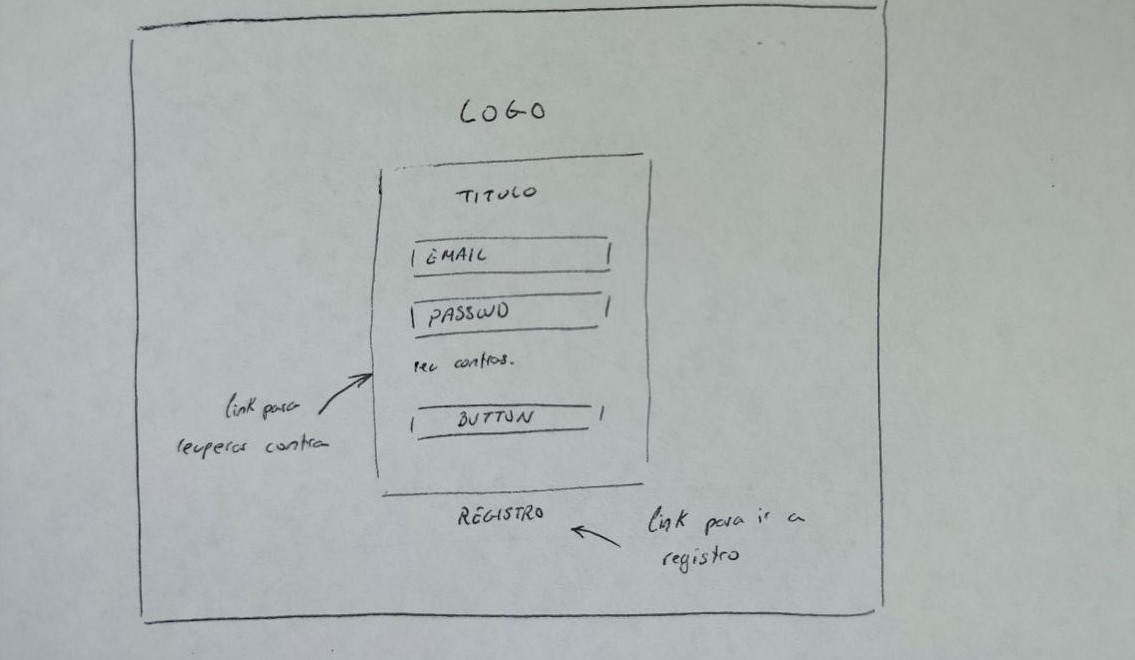 LOGO
TITULO
EMAIL
PASSWD
rec contras.
BUTTON
link para
recuperar contra
REGISTRO
link para ir a
registro